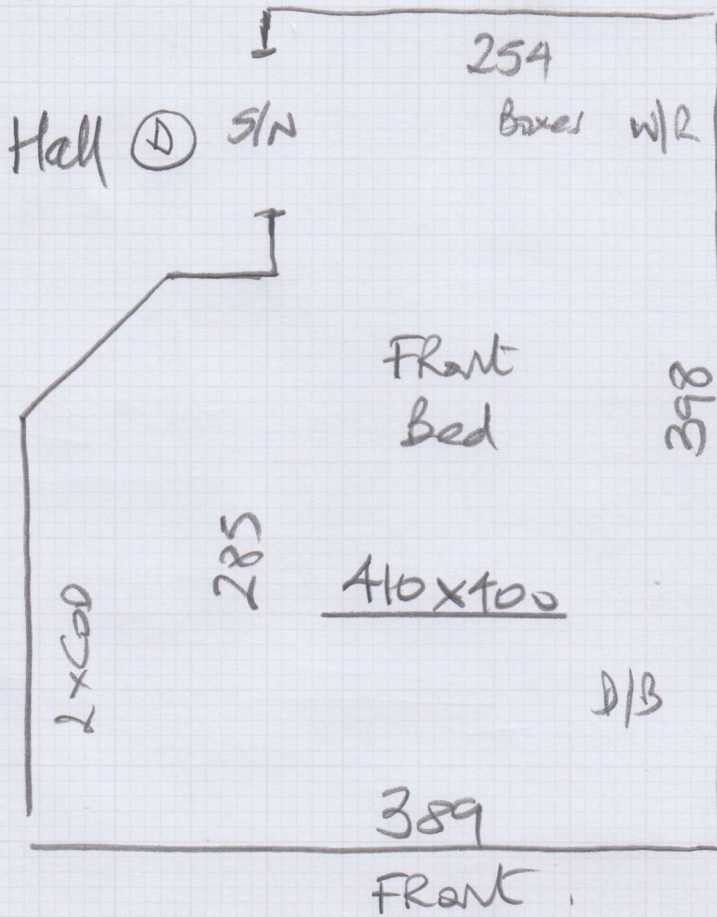 254
Hall D S/N Boxes W/R
Front
Bed
398
285
410x400
2xCOD
D/B
389
Front.